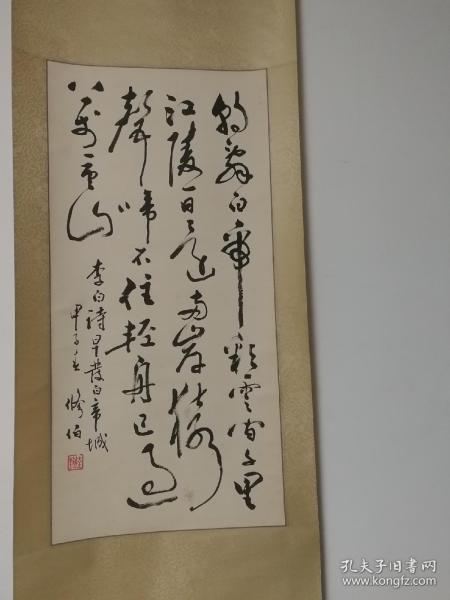 朝辭白帝彩雲間千里
江陵一日還兩岸猿
聲啼不住輕舟已過
萬重山
李白詩早發白帝城
甲子春 脩伯
孔夫子旧书网
www.kongfz.com